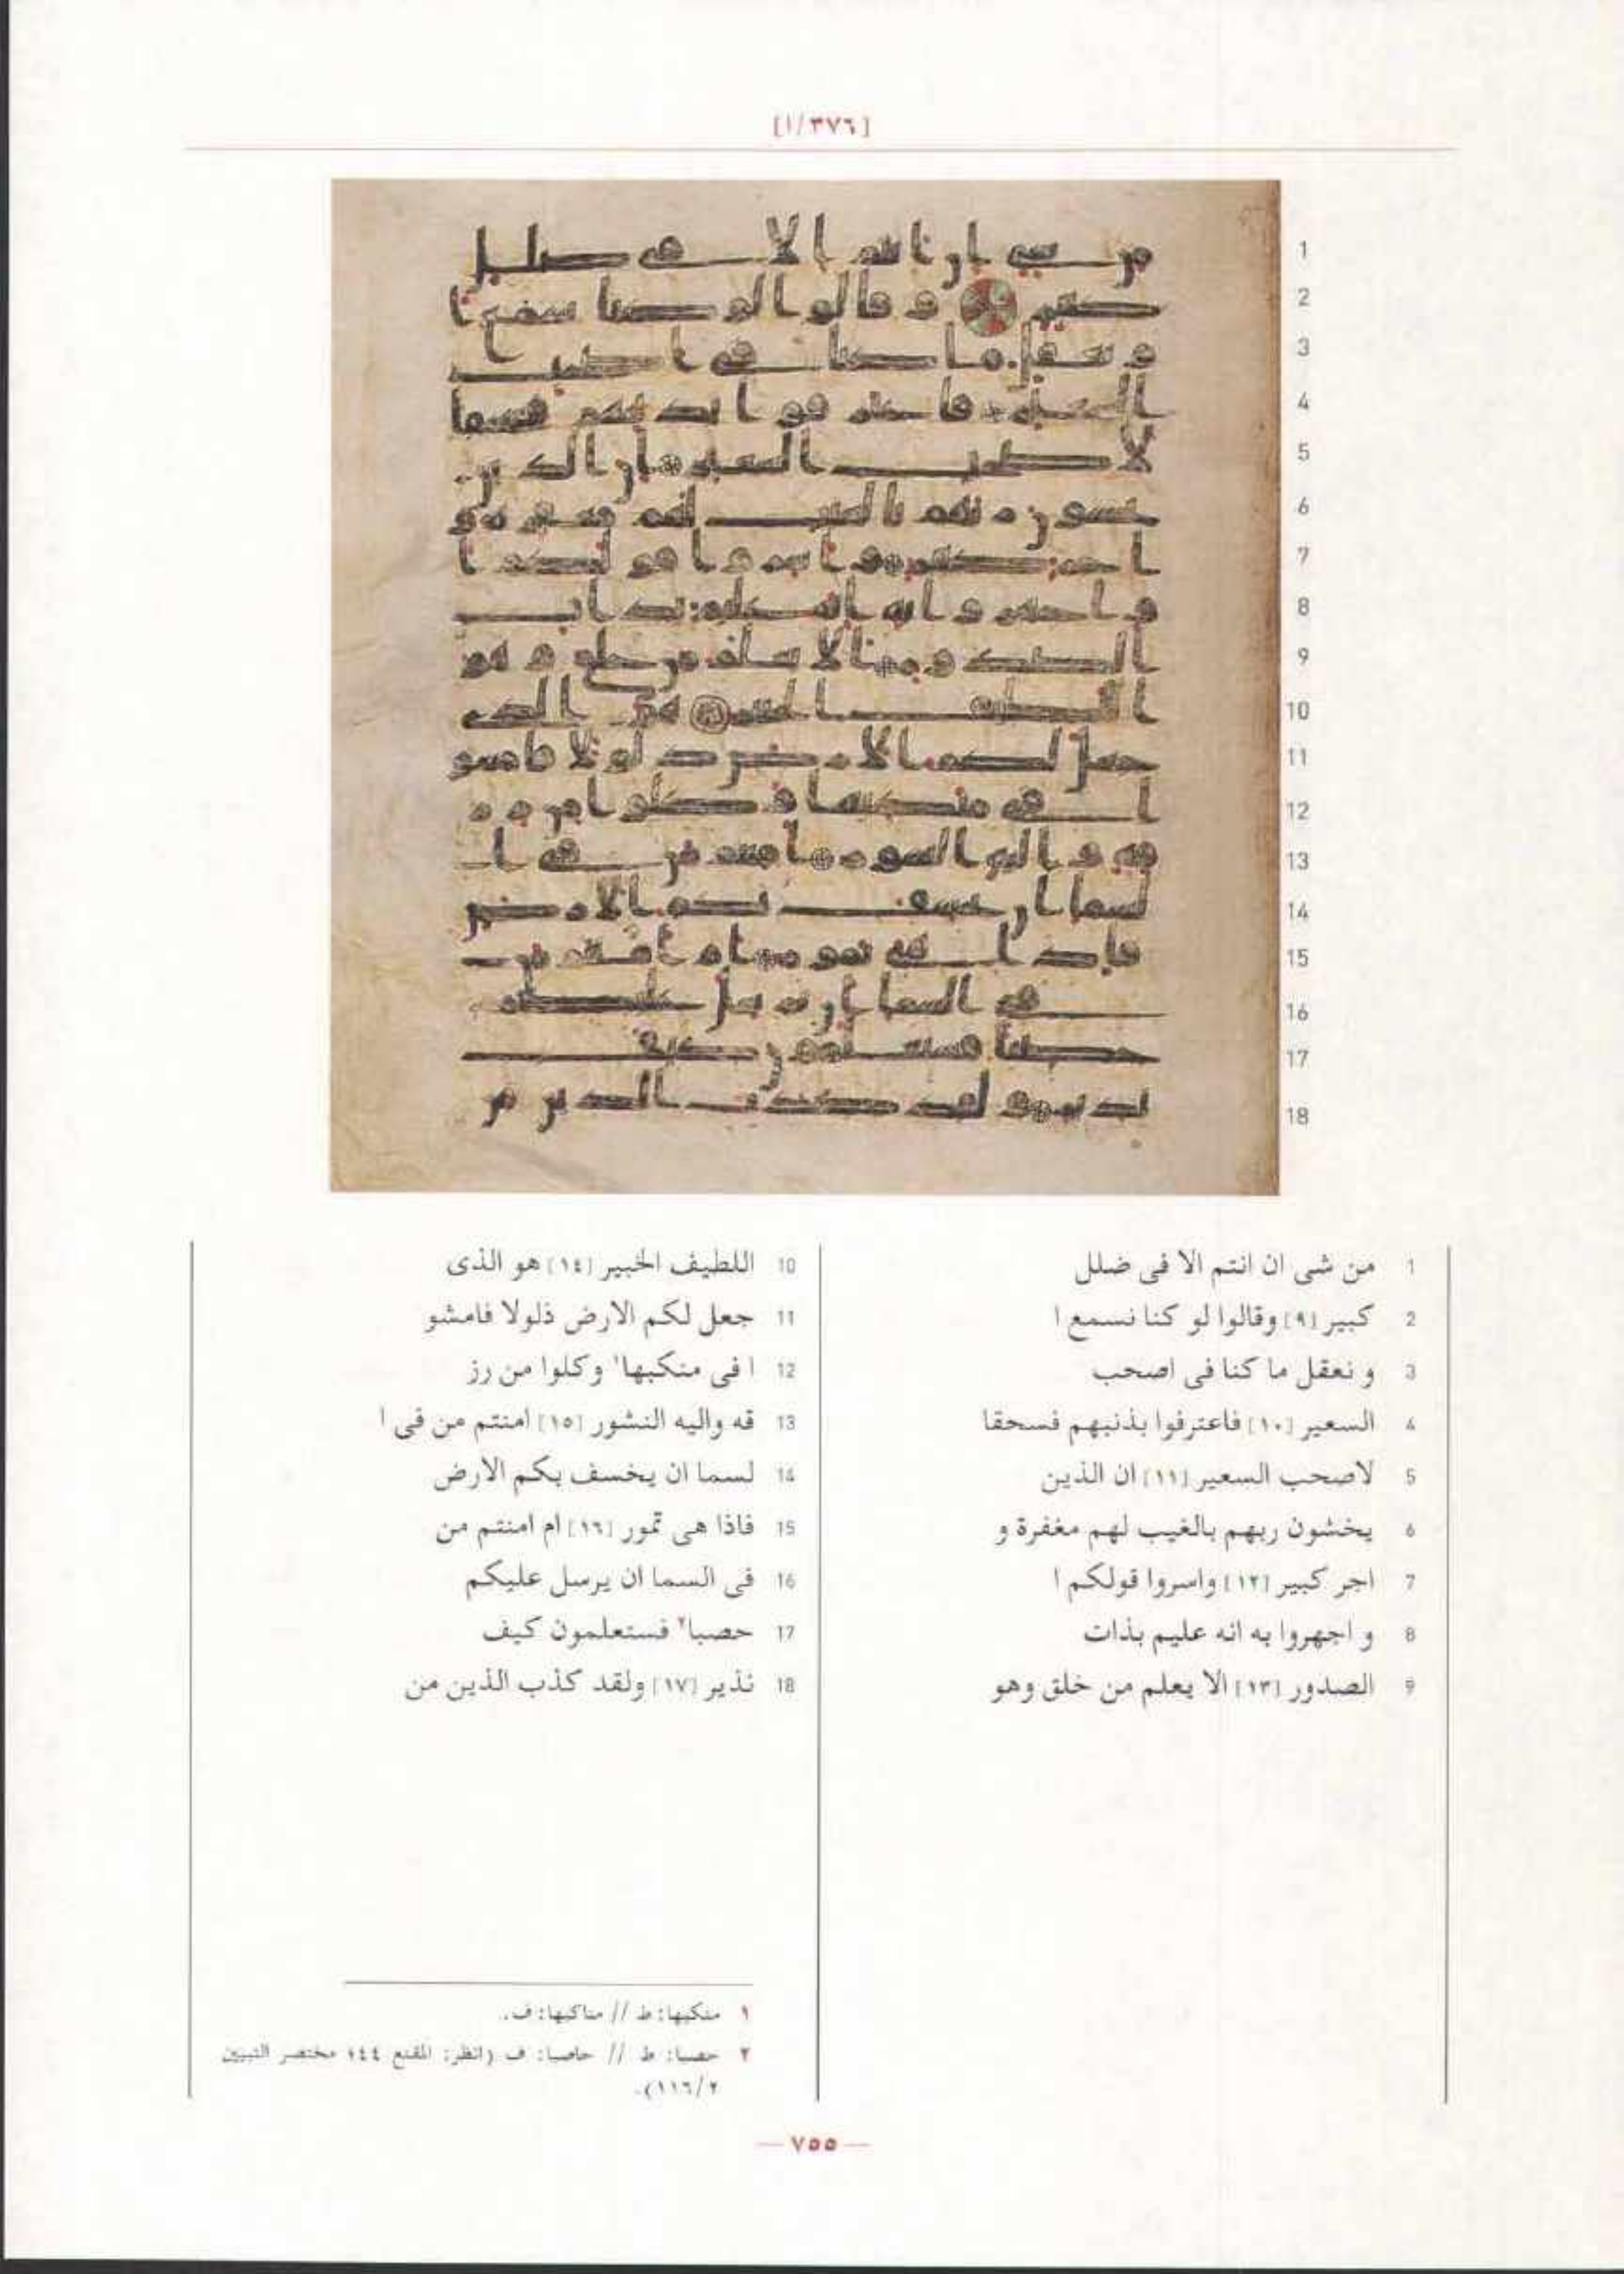 [٣٧٦/١]
1 من شى ان انتم الا فى ضلل
2 كبير [٩] وقالوا لو كنا نسمع ا
3 و نعقل ما كنا فى اصحب
4 السعير [١٠] فاعترفوا بذنبهم فسحقا
5 لاصحب السعير [١١] ان الذين
6 يخشون ربهم بالغيب لهم مغفرة و
7 اجر كبير [١٢] واسروا قولكم ا
8 و اجهروا به انه عليم بذات
9 الصدور [١٣] الا يعلم من خلق وهو
10 اللطيف الخبير [١٤] هو الذى
11 جعل لكم الارض ذلولا فامشو
12 ا فى منكبها١ وكلوا من رز
13 قه واليه النشور [١٥] امنتم من فى ا
14 لسما ان يخسف بكم الارض
15 فاذا هى تمور [١٦] ام امنتم من
16 فى السما ان يرسل عليكم
17 حصبا٢ فستعلمون كيف
18 نذير [١٧] ولقد كذب الذين من
١ منكبها: ط // مناكبها: ف.
٢ حصبا: ط // حاصبا: ف (انظر: المقنع ٤٤؛ مختصر التبيين
١١٦/٢).
— ٧٥٥ —